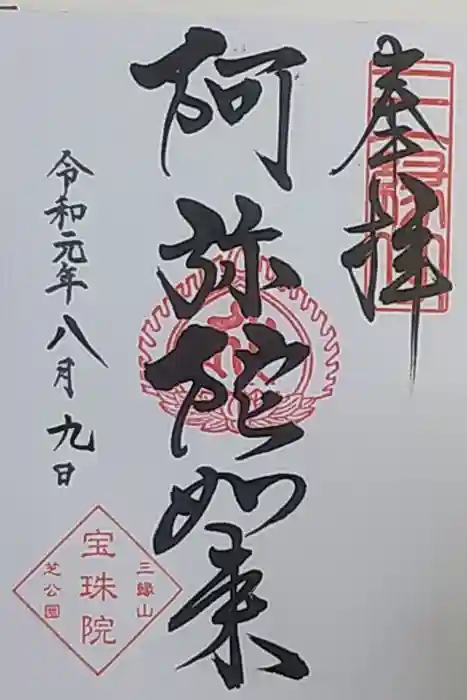 奉拝
三縁山
阿弥陀如来
令和元年八月九日
三縁山
宝珠院
芝公園